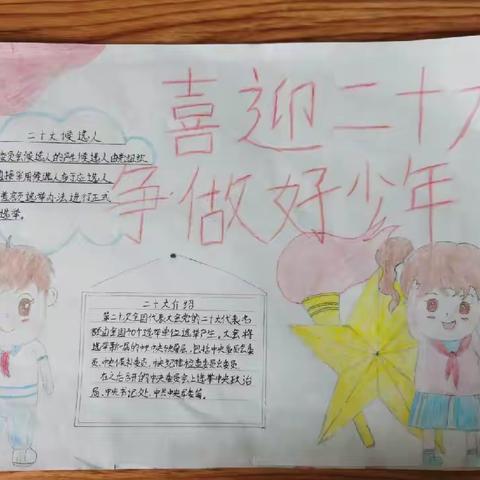 喜迎二十大
争做好少年
二十大候选人
委员会候选人的产生候选人由
直接采用候选人
差额选举办法进行正式
选举。
二十大介绍
第二十次全国代表大会党的二十大代表名
额由全国40个选举单位选举产生。大会将
选举新一届的中共中央领导层,包括中央委员会委
员,中央候补委员,中央纪律检查委员会委员
在之后召开的中央委员会上选举中央政治
局、中央书记处、中共中央军委等。